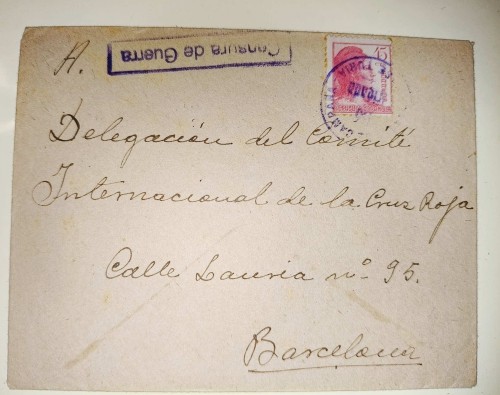 A.
Censura de Guerra
45
Delegación del Comité
Internacional de la Cruz Roja
Calle Lauria nº 95.
Barcelona